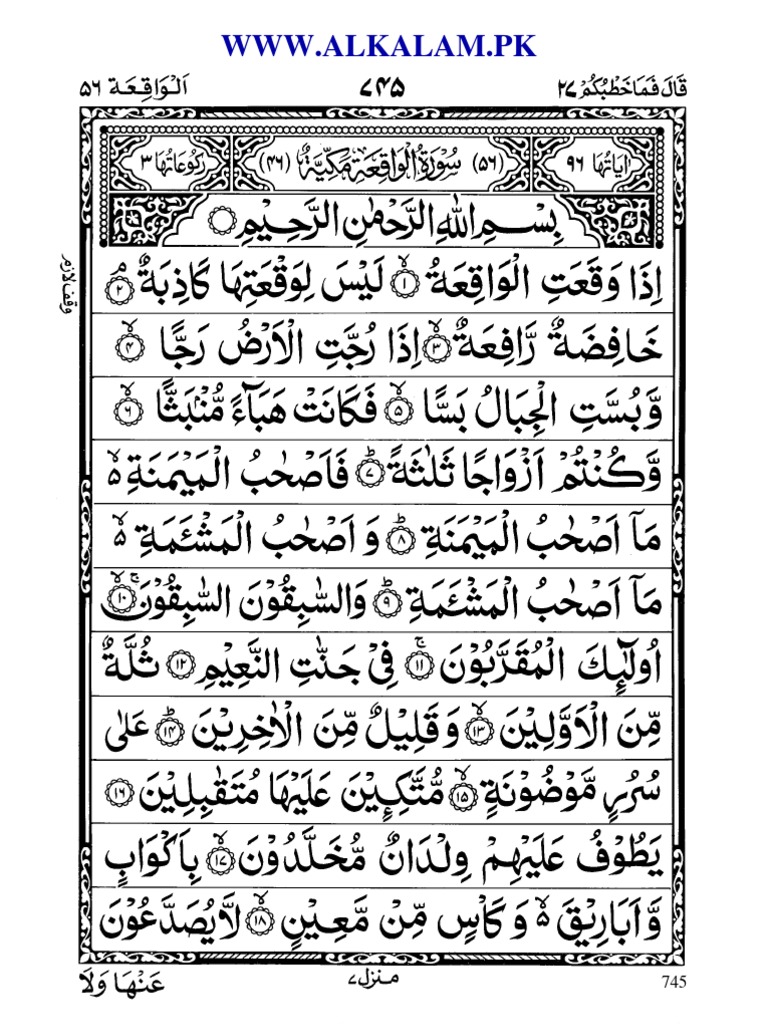 WWW.ALKALAM.PK
قَالَ فَمَا خَطْبُكُمْ ۲۷ ۷۴۵ اَلْوَاقِعَة ۵۶
اٰيَاتُهَا ۹۶ (۵۶) سُوْرَةُ الْوَاقِعَةِ مَكِّيَّةٌ (۴۶) رُكُوْعَاتُهَا ۳
بِسْمِ اللّٰهِ الرَّحْمٰنِ الرَّحِيْمِ
اِذَا وَقَعَتِ الْوَاقِعَةُ ۙ﴿۱﴾ لَيْسَ لِوَقْعَتِهَا كَاذِبَةٌ ۘ﴿۲﴾
وقف لازم
خَافِضَةٌ رَّافِعَةٌ ۙ﴿۳﴾ اِذَا رُجَّتِ الْاَرْضُ رَجًّا ۙ﴿۴﴾
وَّبُسَّتِ الْجِبَالُ بَسًّا ۙ﴿۵﴾ فَكَانَتْ هَبَآءً مُّنْۢبَثًّا ۙ﴿۶﴾
وَّكُنْتُمْ اَزْوَاجًا ثَلٰثَةً ؕ﴿۷﴾ فَاَصْحٰبُ الْمَيْمَنَةِ ۙ۵
مَاۤ اَصْحٰبُ الْمَيْمَنَةِ ؕ﴿۸﴾ وَ اَصْحٰبُ الْمَشْـَٔمَةِ ۙ۵
مَاۤ اَصْحٰبُ الْمَشْـَٔمَةِ ؕ﴿۹﴾ وَالسّٰبِقُوْنَ السّٰبِقُوْنَ ۚۙ﴿۱۰﴾
اُولٰٓئِكَ الْمُقَرَّبُوْنَ ۚ﴿۱۱﴾ فِيْ جَنّٰتِ النَّعِيْمِ ﴿۱۲﴾ ثُلَّةٌ
مِّنَ الْاَوَّلِيْنَ ۙ﴿۱۳﴾ وَ قَلِيْلٌ مِّنَ الْاٰخِرِيْنَ ؕ﴿۱۴﴾ عَلٰى
سُرُرٍ مَّوْضُوْنَةٍ ۙ﴿۱۵﴾ مُّتَّكِـِٕيْنَ عَلَيْهَا مُتَقٰبِلِيْنَ ﴿۱۶﴾
يَطُوْفُ عَلَيْهِمْ وِلْدَانٌ مُّخَلَّدُوْنَ ۙ﴿۱۷﴾ بِاَكْوَابٍ
وَّ اَبَارِيْقَ ۙ۵ وَ كَاْسٍ مِّنْ مَّعِيْنٍ ۙ﴿۱۸﴾ لَّا يُصَدَّعُوْنَ
عَنْهَا وَلَا منزل ۷ 745